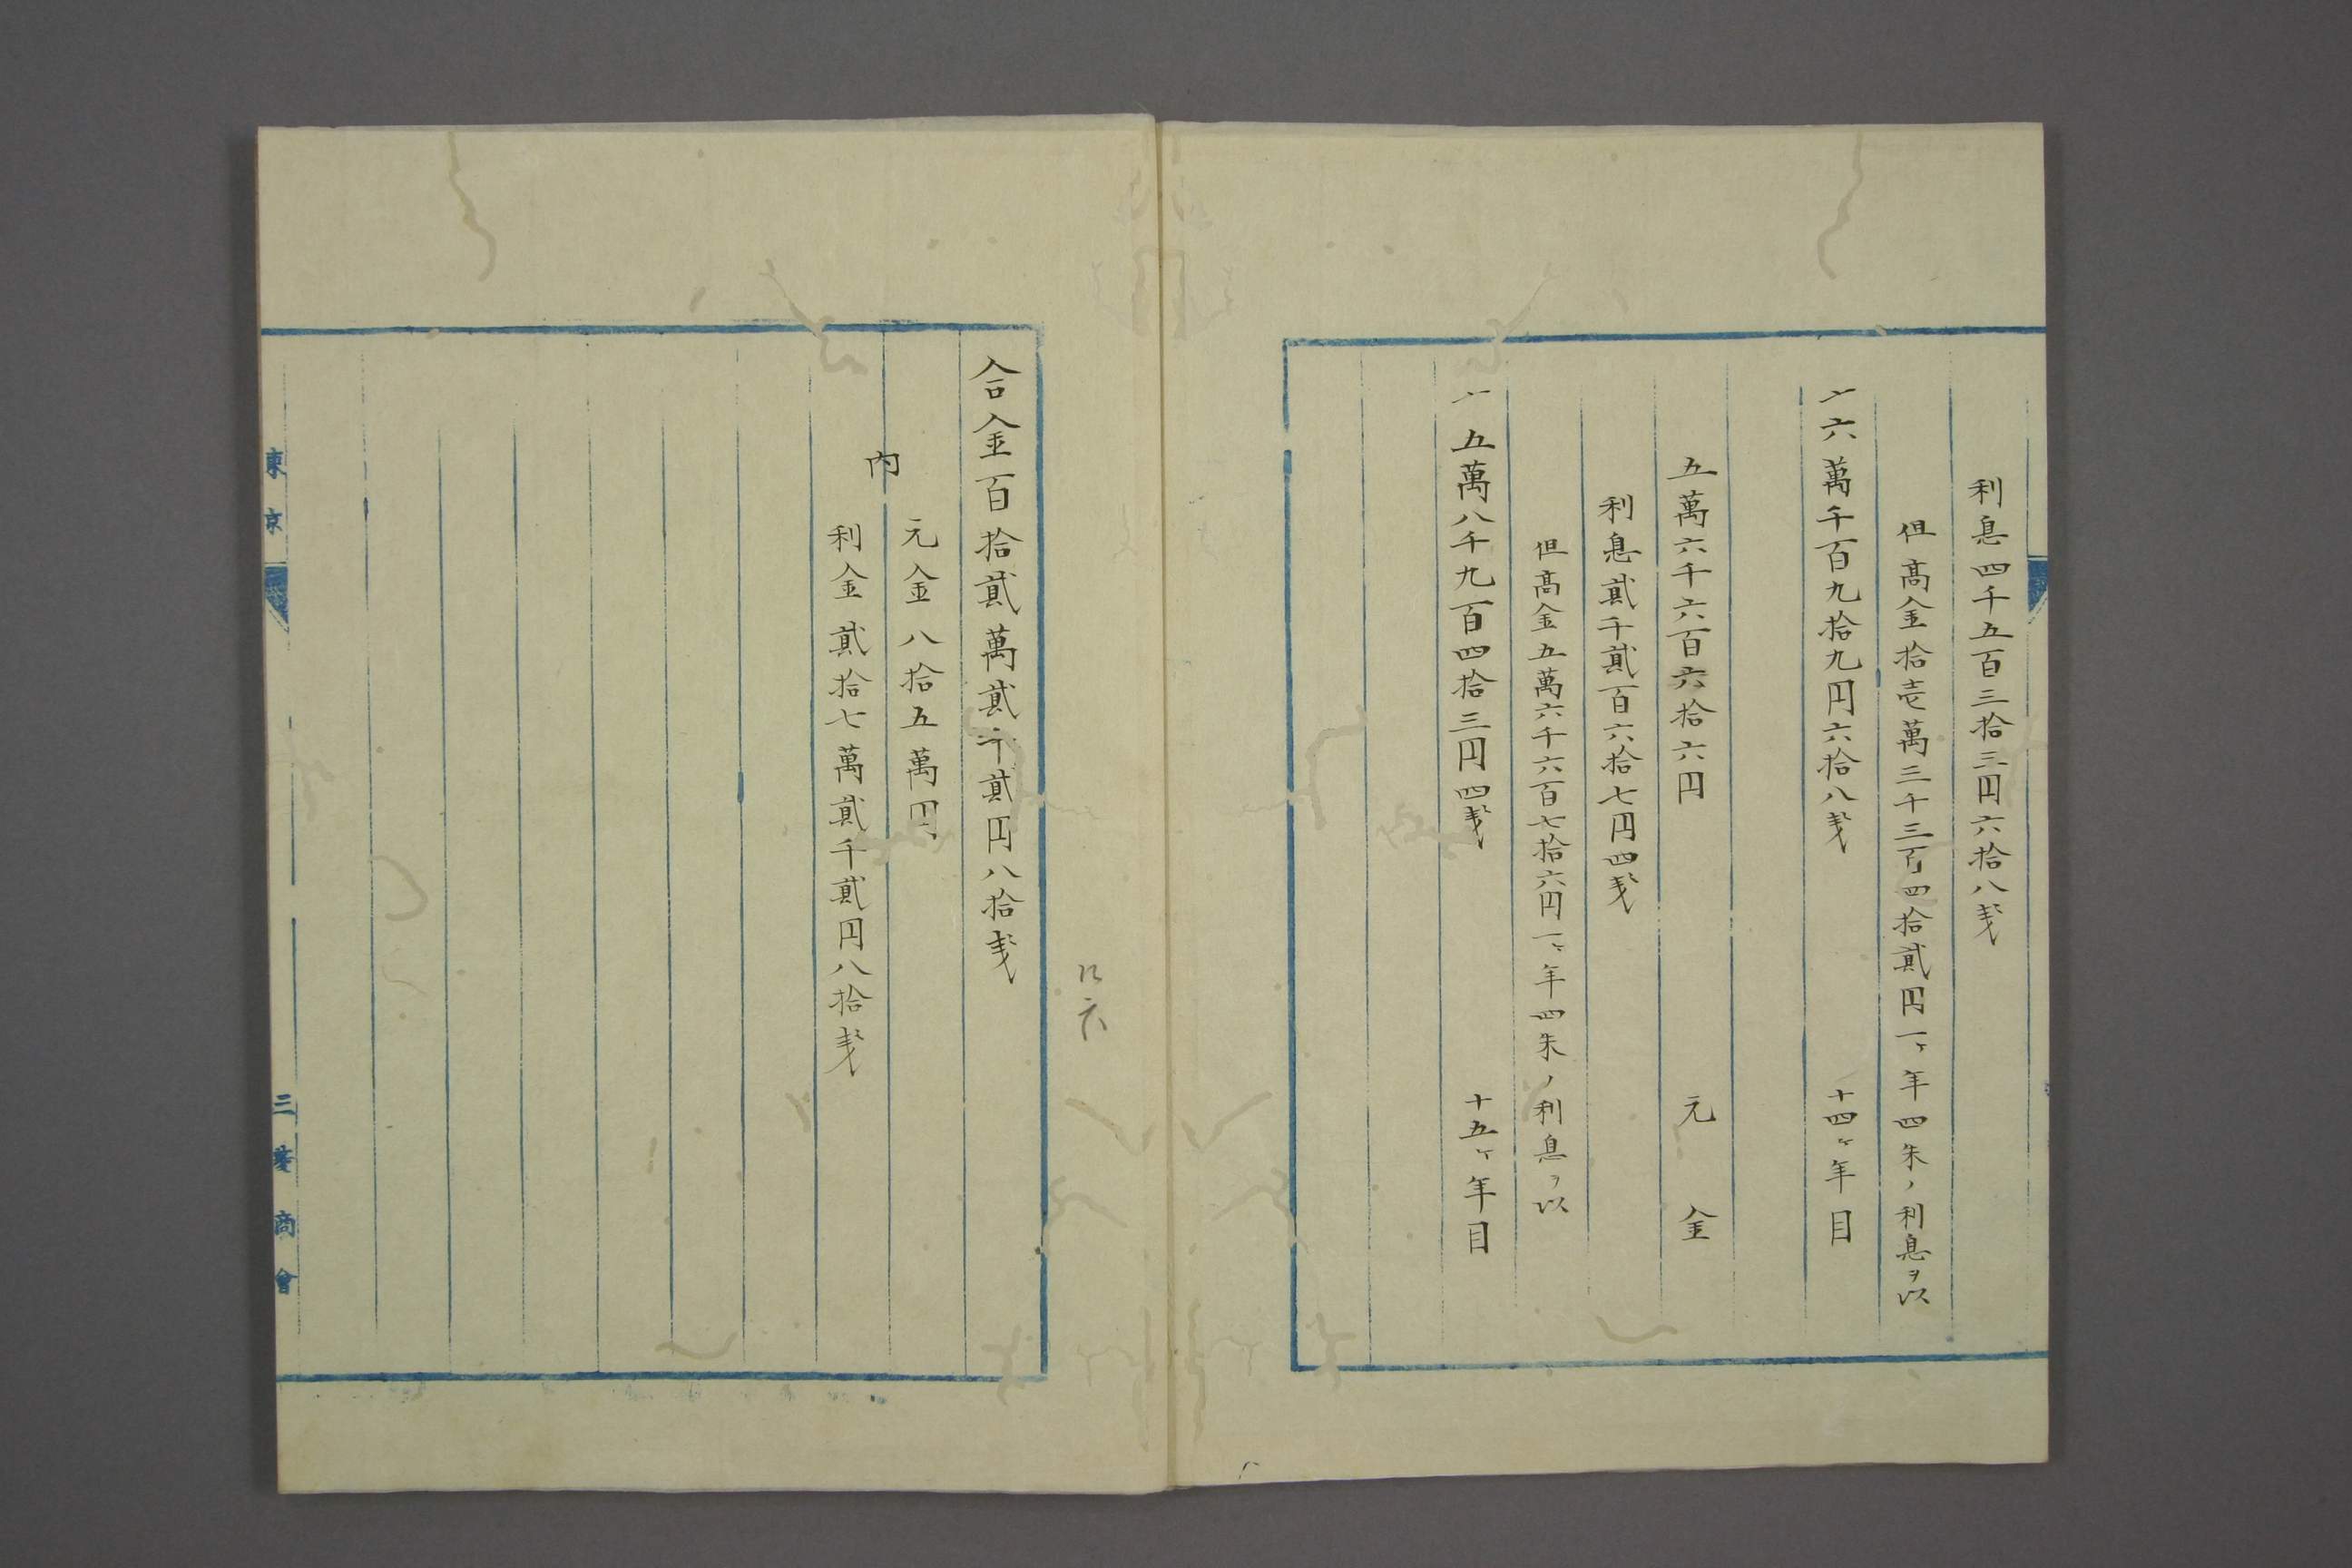 利息四千五百三拾三円六拾八戋
但高金拾壱萬三千三百四拾貳円一ヶ年四朱ノ利息ヲ以
〆六萬千百九拾九円六拾八戋 十四ヶ年目
五萬六千六百六拾六円 元金
利息貳千貳百六拾七円四戋
但高金五萬六千六百七拾六円一ヶ年四朱ノ利息ヲ以
〆五萬八千九百四拾三円四戋 十五ヶ年目
合金百拾貳萬貳千貳円八拾戋
内
元金八拾五萬円
利金貳拾七萬貳千貳円八拾戋
東京
三菱商會